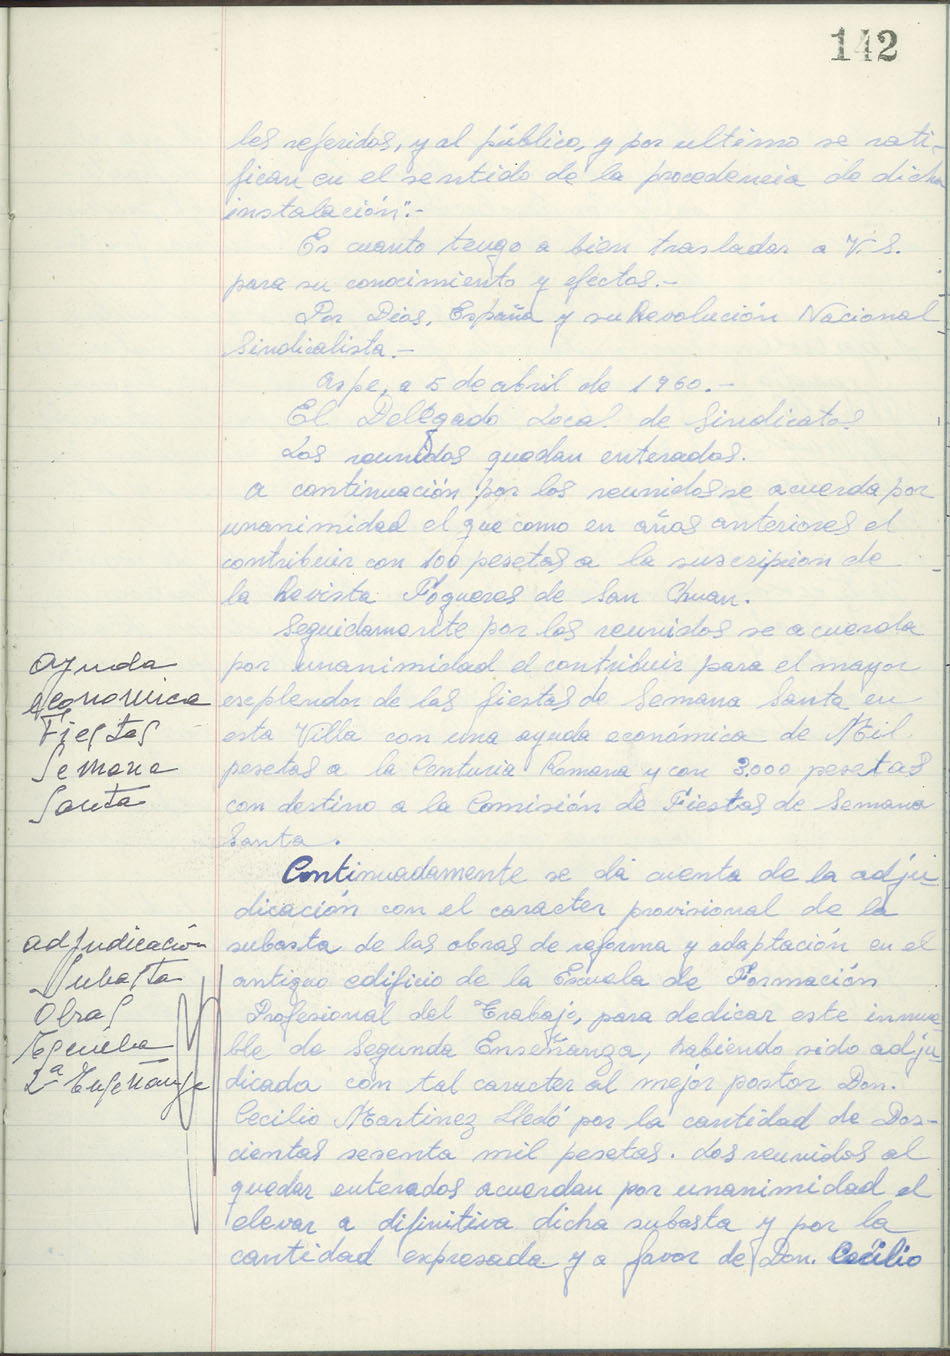 142
les referidos, y al público, y por ultimo se rati-
fican en el sentido de la procedencia de dicha
instalación".-
Es cuanto tengo a bien trasladar a V.S.
para su conocimiento y efectos.-
Por Dios, España y su Revolución Nacional
Sindicalista.-
Aspe, a 5 de abril de 1960.-
El Delegado Local de Sindicatos
Los reunidos quedan enterados.
A continuación por los reunidos se acuerda por
unanimidad el que como en años anteriores el
contribuir con 100 pesetas a la suscripcion de
la Revista Fogueres de San Chuan.
Seguidamente por los reunidos se acuerda
por unanimidad el contribuir para el mayor
explendor de las fiestas de Semana Santa en
esta Villa con una ayuda económica de Mil
pesetas a la Centuria Romana y con 3.000 pesetas
con destino a la Comisión de Fiestas de Semana
Santa.
Continuadamente se dá cuenta de la adju-
dicación con el caracter provisional de la
subasta de las obras de reforma y adaptación en el
antiguo edificio de la Escuela de Formación
Profesional del Trabajo, para dedicar este inmue
ble de Segunda Enseñanza, habiendo sido adju-
dicada con tal caracter al mejor postor Don.
Cecilio Martinez Lledó por la cantidad de Dos-
cientas sesenta mil pesetas. Los reunidos al
quedar enterados acuerdan por unanimidad el
elevar a difinitiva dicha subasta y por la
cantidad expresada y a favor de Don. Cecilio
Ayuda
economica
Fiestas
Semana
Santa
Adjudicación
Subasta
Obras
Escuela
2ª Enseñanza